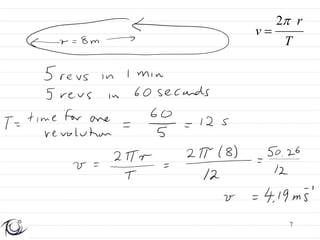 r = 8m
v = 2π r / T
5 revs in 1 min
5 revs in 60 seconds
T = time for one revolution = 60 / 5 = 12 s
v = 2πr / T = 2π(8) / 12 = 50.26 / 12
v = 4.19 ms⁻¹
7